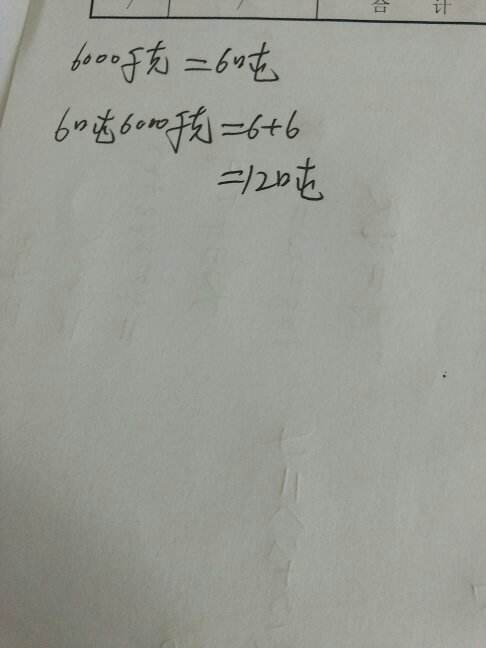 合 计
6000千克=6吨
6吨6000千克=6+6
=12吨